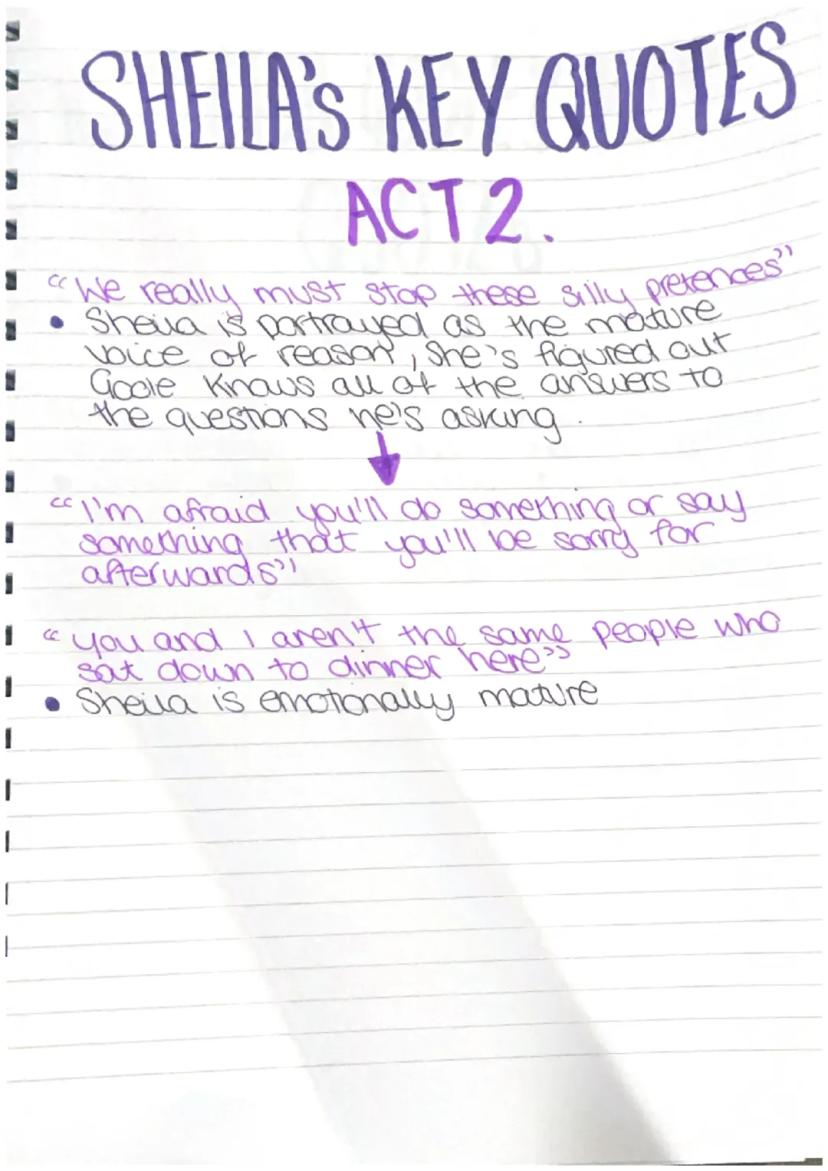 SHEILA's KEY QUOTES
ACT 2.
"We really must stop these silly pretences"
• Sheila is portrayed as the mature
voice of reason, she's figured out
Goole knows all of the answers to
the questions he's asking.
"I'm afraid you'll do something or say
something that you'll be sorry for
afterwards"
"you and I aren't the same people who
sat down to dinner here"
• Sheila is emotionally mature